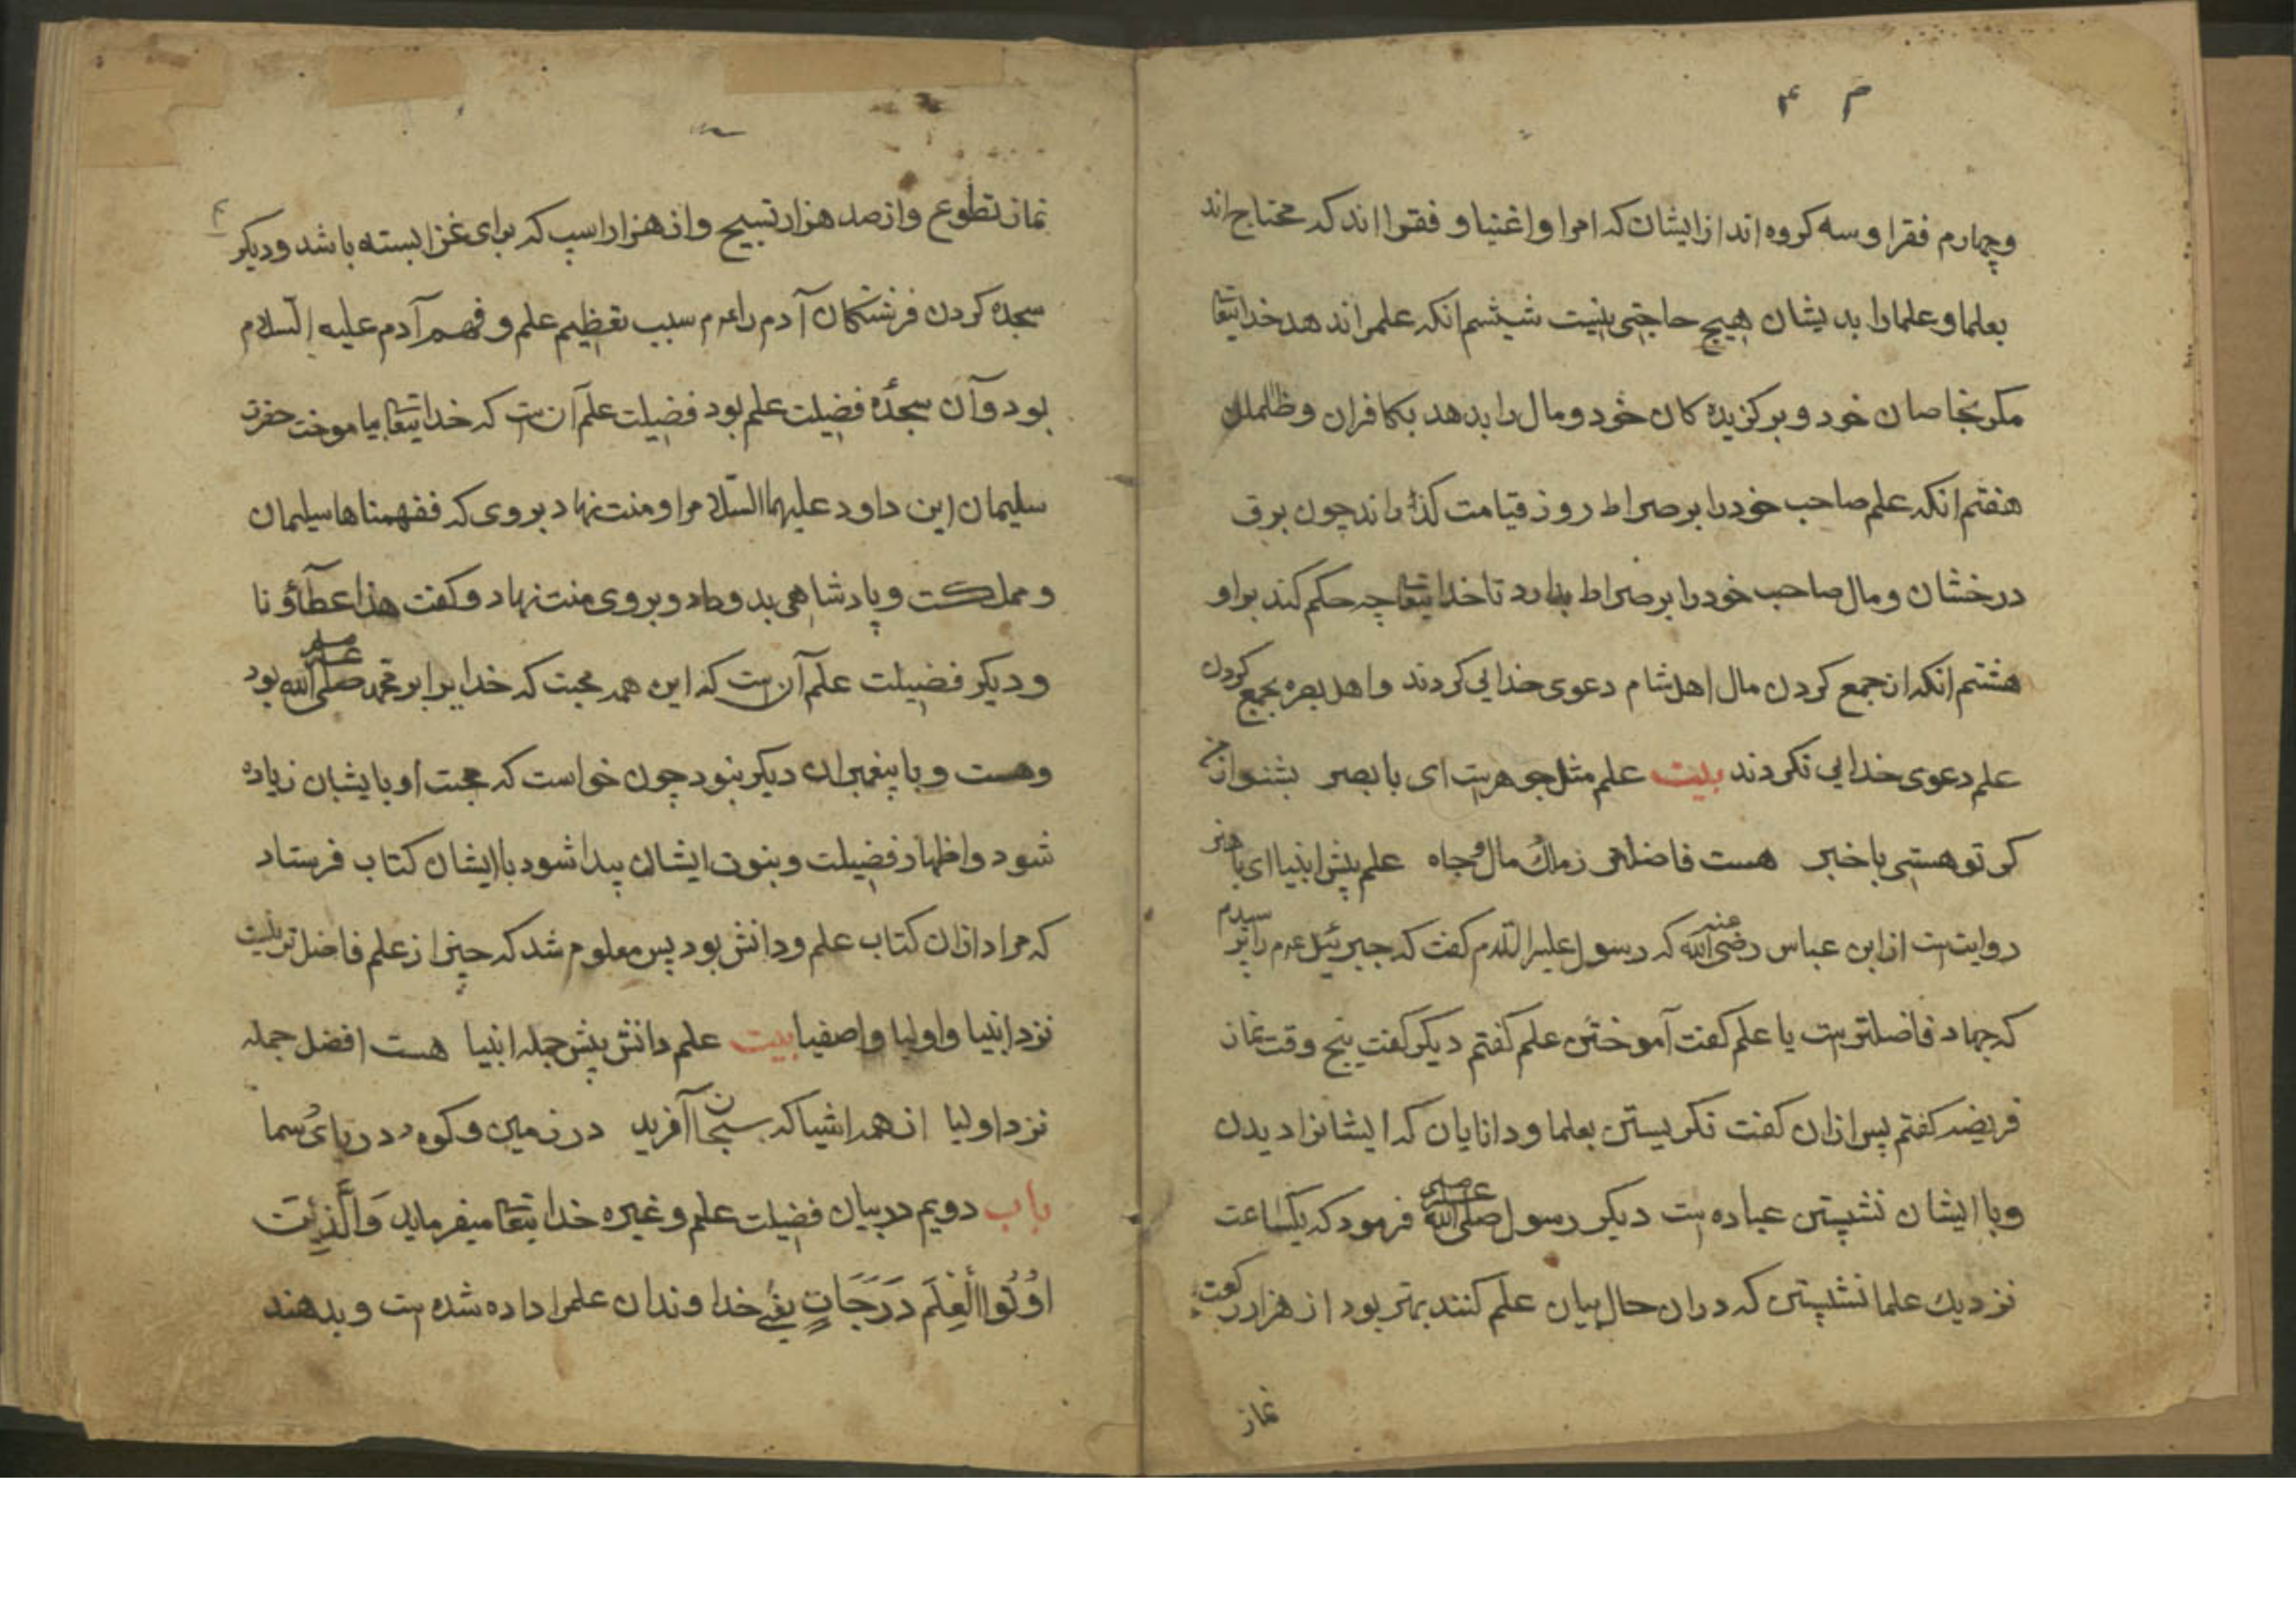 م ۴
وچهارم فقرا و سه کروه اند از ایشان که امرا و اغنیا و فقرا اند که محتاج اند
بعلما و علما را بدیشان هیچ حاجتی نیست شیشم انکه علم را ندهد خدایتعا
مکر بخاصان خود و برکزیده کان خود و مال را بدهد بکافران و ظالمان
هفتم انکه علم صاحب خود را بر صراط روز قیامت کذراند چون برق
درخشان و مال صاحب خود را بر صراط بدارد تا خدایتعا چه حکم کند بر او
هشتم انکه از جمع کردن مال اهل شام دعوی خدایی کردند و اهل بصره بجمع کردن
علم دعوی خدایی نکردند بیت علم مثل جوهرست ای با بصر بشنو از من
کر تو هستی با خبر هست فاضلتر ز ملک مال و جاه علم پیش انبیا ای با هنر
روایتست از ابن عباس رضی الله عنه که رسول علیه السلام کفت که جبرئیل عم را پرسیدم
که جهاد فاضلترست یا علم کفت آموختن علم کفتم دیکر کفت پنج وقت نماز
فریضه کفتم پس ازان کفت نکریستن بعلما و دانایان که ایشانرا دیدن
و با ایشان نشیتن عباده ست دیکر رسول صلی الله علیه وسلم فرمود که یکساعت
نزدیک علما نشیتن که دران حال بیان علم کنند بهتر بود از هزار رکعت
نماز
نماز تطوع و از صد هزار تسبیح و از هزار اسپ که برای غزا بسته باشد و دیکر
سجده کردن فرشتکان آدم را عم سبب تعظیم علم و فهم آدم علیه السلام
بود و آن سجدهٔ فضیلت علم بود فضیلت علم آن ست که خدایتعا بیاموخت حضرت
سلیمان ابن داود علیهما السلام را و منت نهاد بروی که ففهمناها سلیمان
و مملکت و پادشاهی بدو داد و بروی منت نهاد و کفت هذا عطآؤنا
و دیکر فضیلت علم آن ست که این همه محبت که خدایرا بر محمد صلی الله علیه وسلم بود
وهست و با پیغمبران دیکر بنود چون خواست که محبت او با یشان زیاده
شود و اظهار فضیلت و بنوت ایشان پیدا شود با ایشان کتاب فرستاد
که مراد ازان کتاب علم و دانش بود پس معلوم شد که چیزی از علم فاضل تر نیست
نزد انبیا و اولیا و اصفیا بیت علم دانش پیش جمله انبیا هست افضل جمله
نزد اولیا از همه اشیا که سبحان آفرید در زمین و کوه و دریای سما
باب دویم در بیان فضیلت علم و غیره خدایتعا میفرماید وَالَّذِینَ
اُوْتُوا الْعِلْمَ دَرَجَاتٍ یعنی خداوندان علم را داده شده ست و بدهند